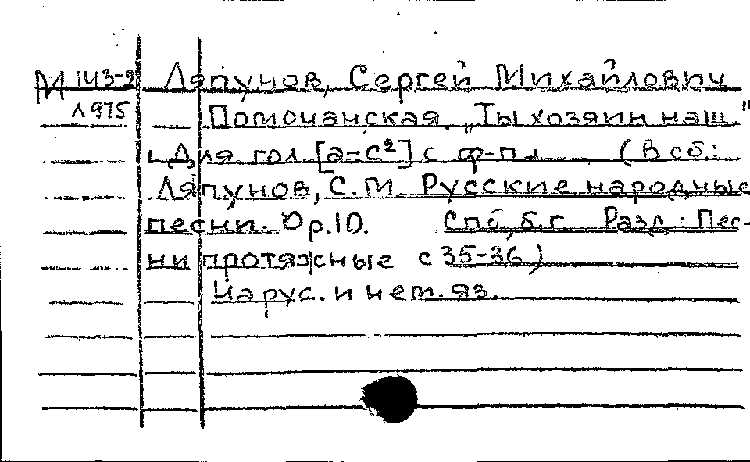 М 143-9 Ляпунов, Сергей Михайлович
Л 975 Помочанская. „Ты хозяин наш."
Для гол [a-c²] с ф-п. (В сб.:
Ляпунов, С. М. Русские народные
песни. Op. 10. Спб, б.г. Разд.: Пес-
ни протяжные с 35-36)
На рус. и нем. яз.